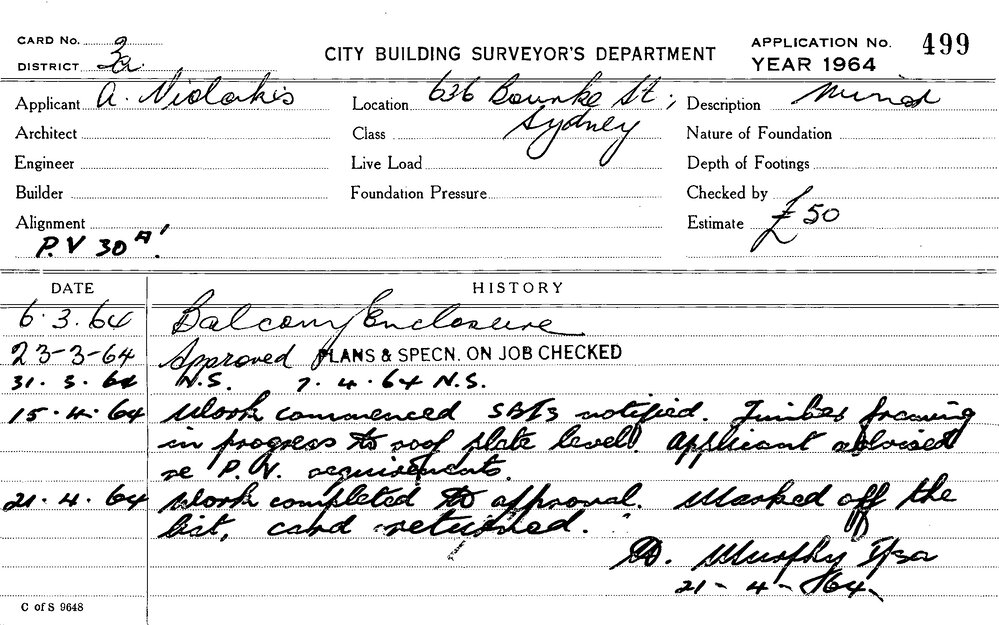 CARD No. 3
DISTRICT 2a.
CITY BUILDING SURVEYOR'S DEPARTMENT
APPLICATION No. 499
YEAR 1964
Applicant A. Violakis Location 636 Bourke St; Description Minor
Architect Class Sydney Nature of Foundation
Engineer Live Load Depth of Footings
Builder Foundation Pressure Checked by
Alignment Estimate £50
P.V 30
DATE HISTORY
6.3.64 Balcony Enclosure
23-3-64 Approved PLANS & SPECN. ON JOB CHECKED
31.3.64 N.S. 7.4.64 N.S.
15.4.64 Work commenced notified. Timber framing
in progress to roof plate level. Applicant advised
re P.V. requirements.
21.4.64 Work completed to approval. Marked off the
list, card returned.
Murphy
21-4-64.
C of S 9648